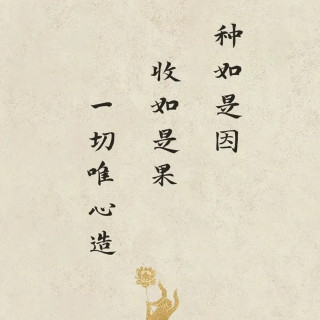 种如是因
收如是果
一切唯心造